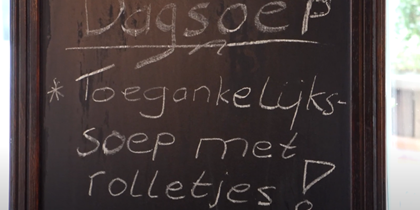 Dagsoep
* Toegankelijks-
soep met
rolletjes!